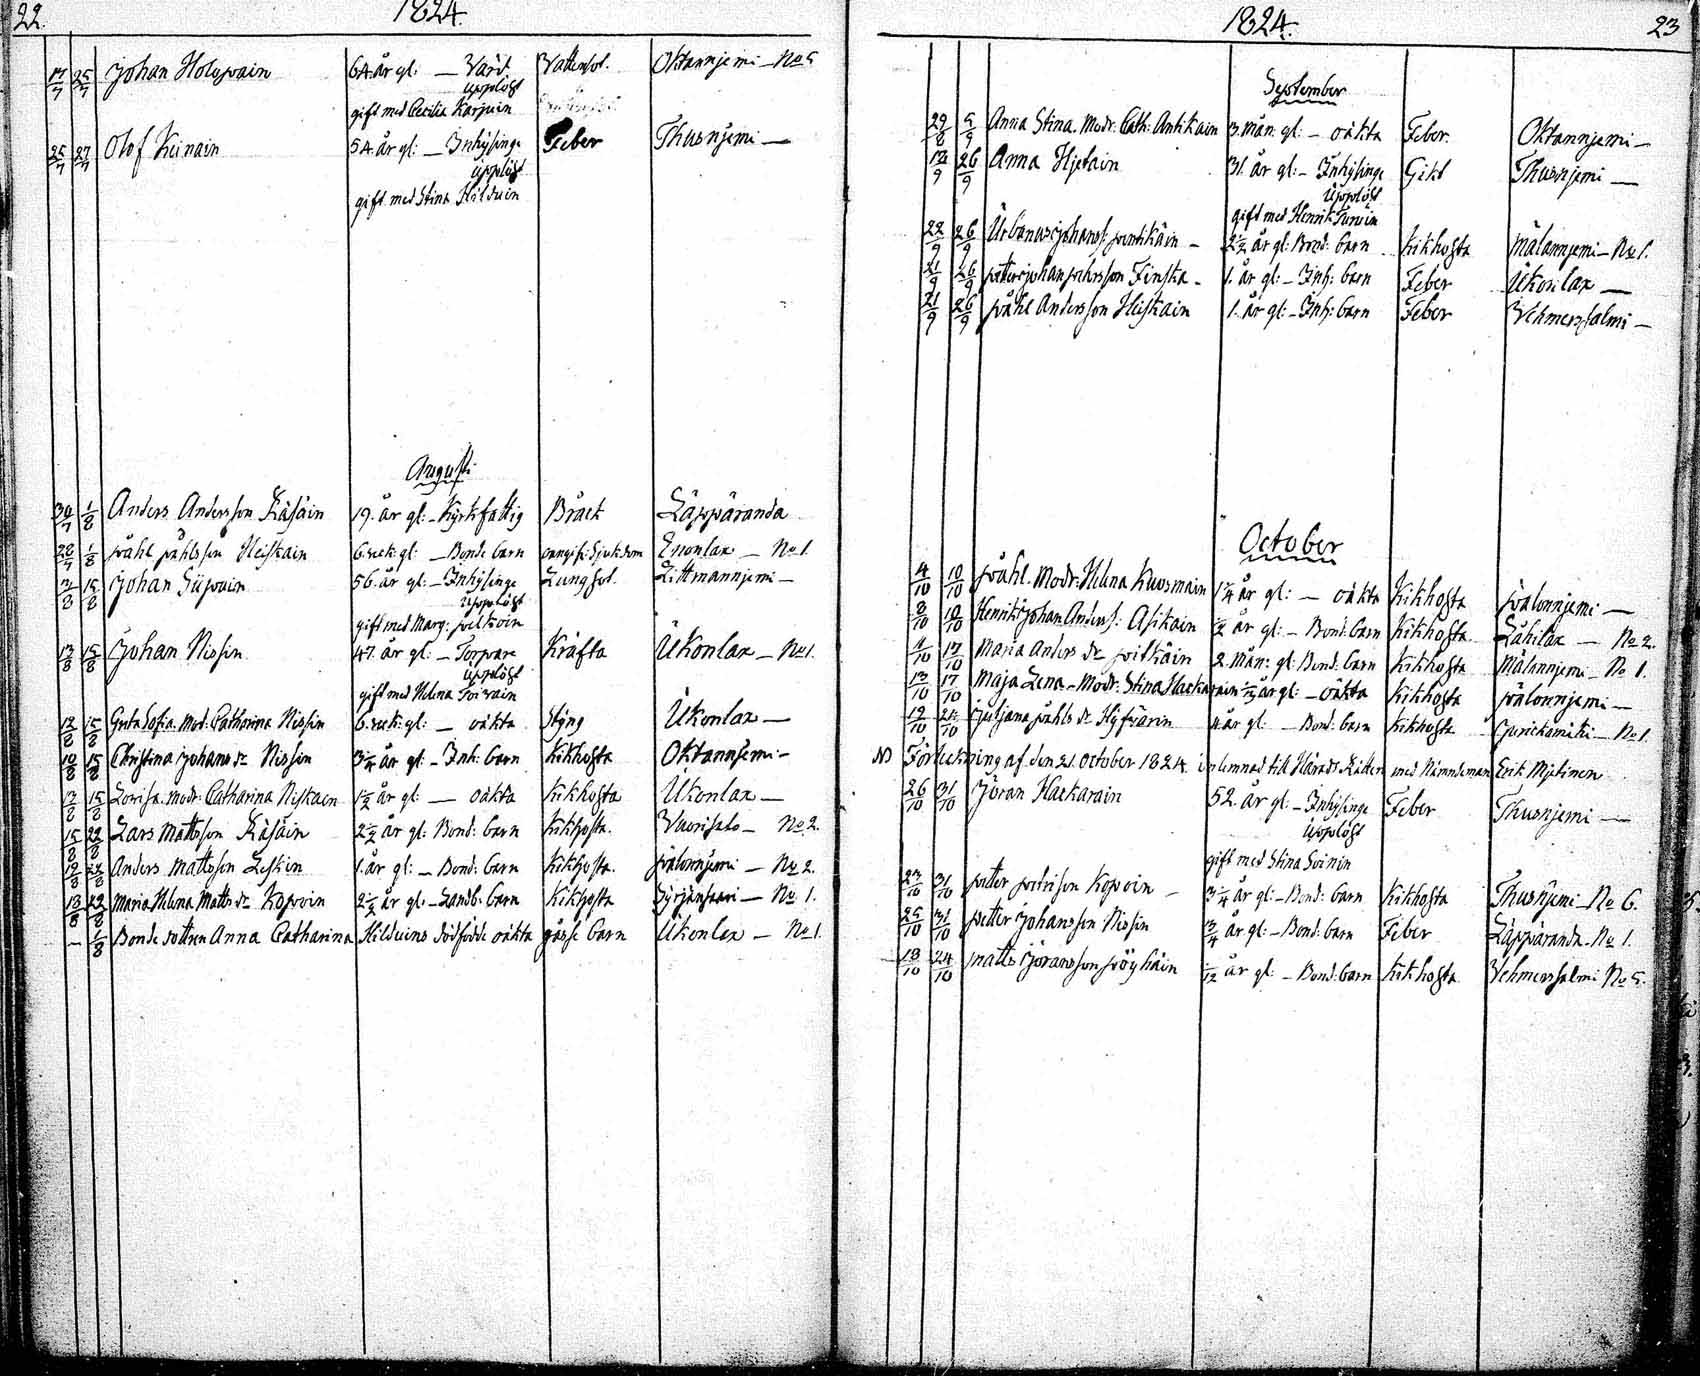 22. 1824.
17/7 25/7 Johan Holopain 64. år gl: — Värd Vattusot. Oktannjemi — No 5
Upplöst
gift med Cecilia Karpuin
25/7 27/7 Olof Keinain 54. år gl: — Inhysinge Feber Thusnjemi —
Upplöst
gift med Stina Hilduin
Augusti
30/7 1/8 Anders Andersson Räsäin 19. år gl: — Kyrkfattig Bråck Läppäranda
28/7 1/8 Påhl Påhlsson Heiskain 6. veck: gl: — Bonde barn oangif: Sjukdom Enonlax — No 1.
13/8 15/8 Johan 56. år gl: — Inhysinge Lungsot. Littmannjemi —
Upplöst
gift med Marg: Pitkäin
13/8 15/8 Johan Nissin 47. år gl: — Torpare Kräfta Ukonlax — No 1.
Upplöst
gift med Helena Toivain
12/8 15/8 Greta Sofia. Mod: Catharina Nissin 6. veck: gl: — oäkta Styng Ukonlax —
10/8 15/8 Christina Johans dr Nissin 3 1/4 år gl: — Inh: barn Kikhosta Oktannjemi —
13/8 15/8 Lovisa. Modr: Catharina Niskain 1 1/2 år gl: — oäkta Kikhosta Ukonlax —
15/8 22/8 Lars Mattsson Räsäin 2 1/2 år gl: Bond: barn Kikhosta. Vuorisalo — No 2.
19/8 22/8 Anders Mattsson Leskin 1. år gl: — Bond: barn Kikhosta. Pälonnjemi — No 2.
18/8 22/8 Maria Helena Matts dr Kopoin 2 1/2 år gl: — Landb: barn Kikhosta Syrjänsaari — No 1.
— 1/8 Bonde dottren Anna Catharina Hilduins dödfödde oäkta gosse barn Ukonlax — No 1.
1824. 23
September
29/8 5/9 Anna Stina. Modr: Cath: Antikain 3. Mån: gl: — oäkta Feber. Oktannjemi —
12/9 26/9 Anna Hyttäin 31. år gl: — Inhysinge Gikt Thusnjemi —
Upplöst
gift med Henrik Turuin
22/9 26/9 Urbanus Johans s: Pentikäin — 2 1/2 år gl: Bond: barn Kikhosta Mälannjemi — No 1.
21/9 26/9 Petter Johan Pehrsson Finska — 1. år gl: — Inh: barn Feber Ukonlax —
21/9 26/9 Påhl Andersson Heiskain 1. år gl: — Inh: barn Feber Vehmersalmi —
October
4/10 10/10 Påhl. Modr: Helena Kuosmain 1 1/4 år gl: — oäkta Kikhosta Pälonnjemi —
8/10 10/10 Henrik Johan Anders s: Asikain 1/2 år gl: — Bond: barn Kikhosta Låkilax — No 2.
11/10 17/10 Maria Anders dr Pitkäin 2. Mån: gl: Bond: barn Kikhosta Mälannjemi — No 1.
13/10 17/10 Maja Lena — Modr: Stina Hackarain år gl: — oäkta Kikhosta Pälonnjemi —
19/10 24/10 Juljana Påhls dr Hyfvärin 4 år gl: — Bond: barn Kikhosta Jurickamäki — No 1.
NB Förteckning af den 21. October 1824. inlemnad till Härads Rätten med Nämndeman Erik Mjetinen
26/10 31/10 Jöran Hackarain 52. år gl: — Inhysinge Feber Thusnjemi —
Upplöst
gift med Stina Soinin
23/10 31/10 Petter Petrisson Kopoin — 3 1/4 år gl: — Bond: barn Kikhosta Thusnjemi — No 6.
25/10 31/10 Petter Johansson Nissin 3/4 år gl: — Bond: barn Feber Läppäranda — No 1.
18/10 24/10 Matts Jöransson Pöyhäin 1/12 år gl: — Bond: barn Kikhosta Vehmersalmi No 5.